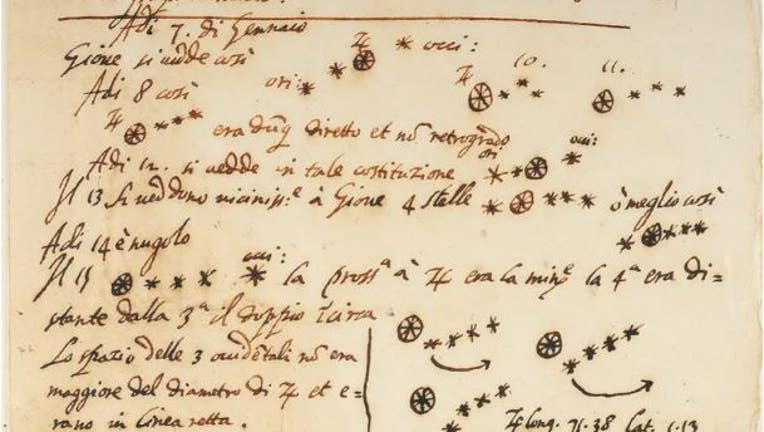 Adi 7. di Gennaio
Gione si vedde così ♃ occi:
ori:
Adi 8 così ♃ 10. 11.
♃ era dunq̃ diretto et nõ retrogrado
Adi 12. si vedde in tale costituzione ori occi:
Il 13 si veddono vicinissᵉ à Giove 4 stelle ò meglio così
Adi 14 è nugolo
Il 15 occi: la prossᵃ à ♃ era la minᵉ la 4ᵃ era di=
stante dalla 3ᵃ il doppio ĩcirca
Lo spazio delle 3 occidẽtali nõ era
maggiore del diametro di ♃ et e=
rano in linea retta.
♃ long. 71.38 Lat. 1.13